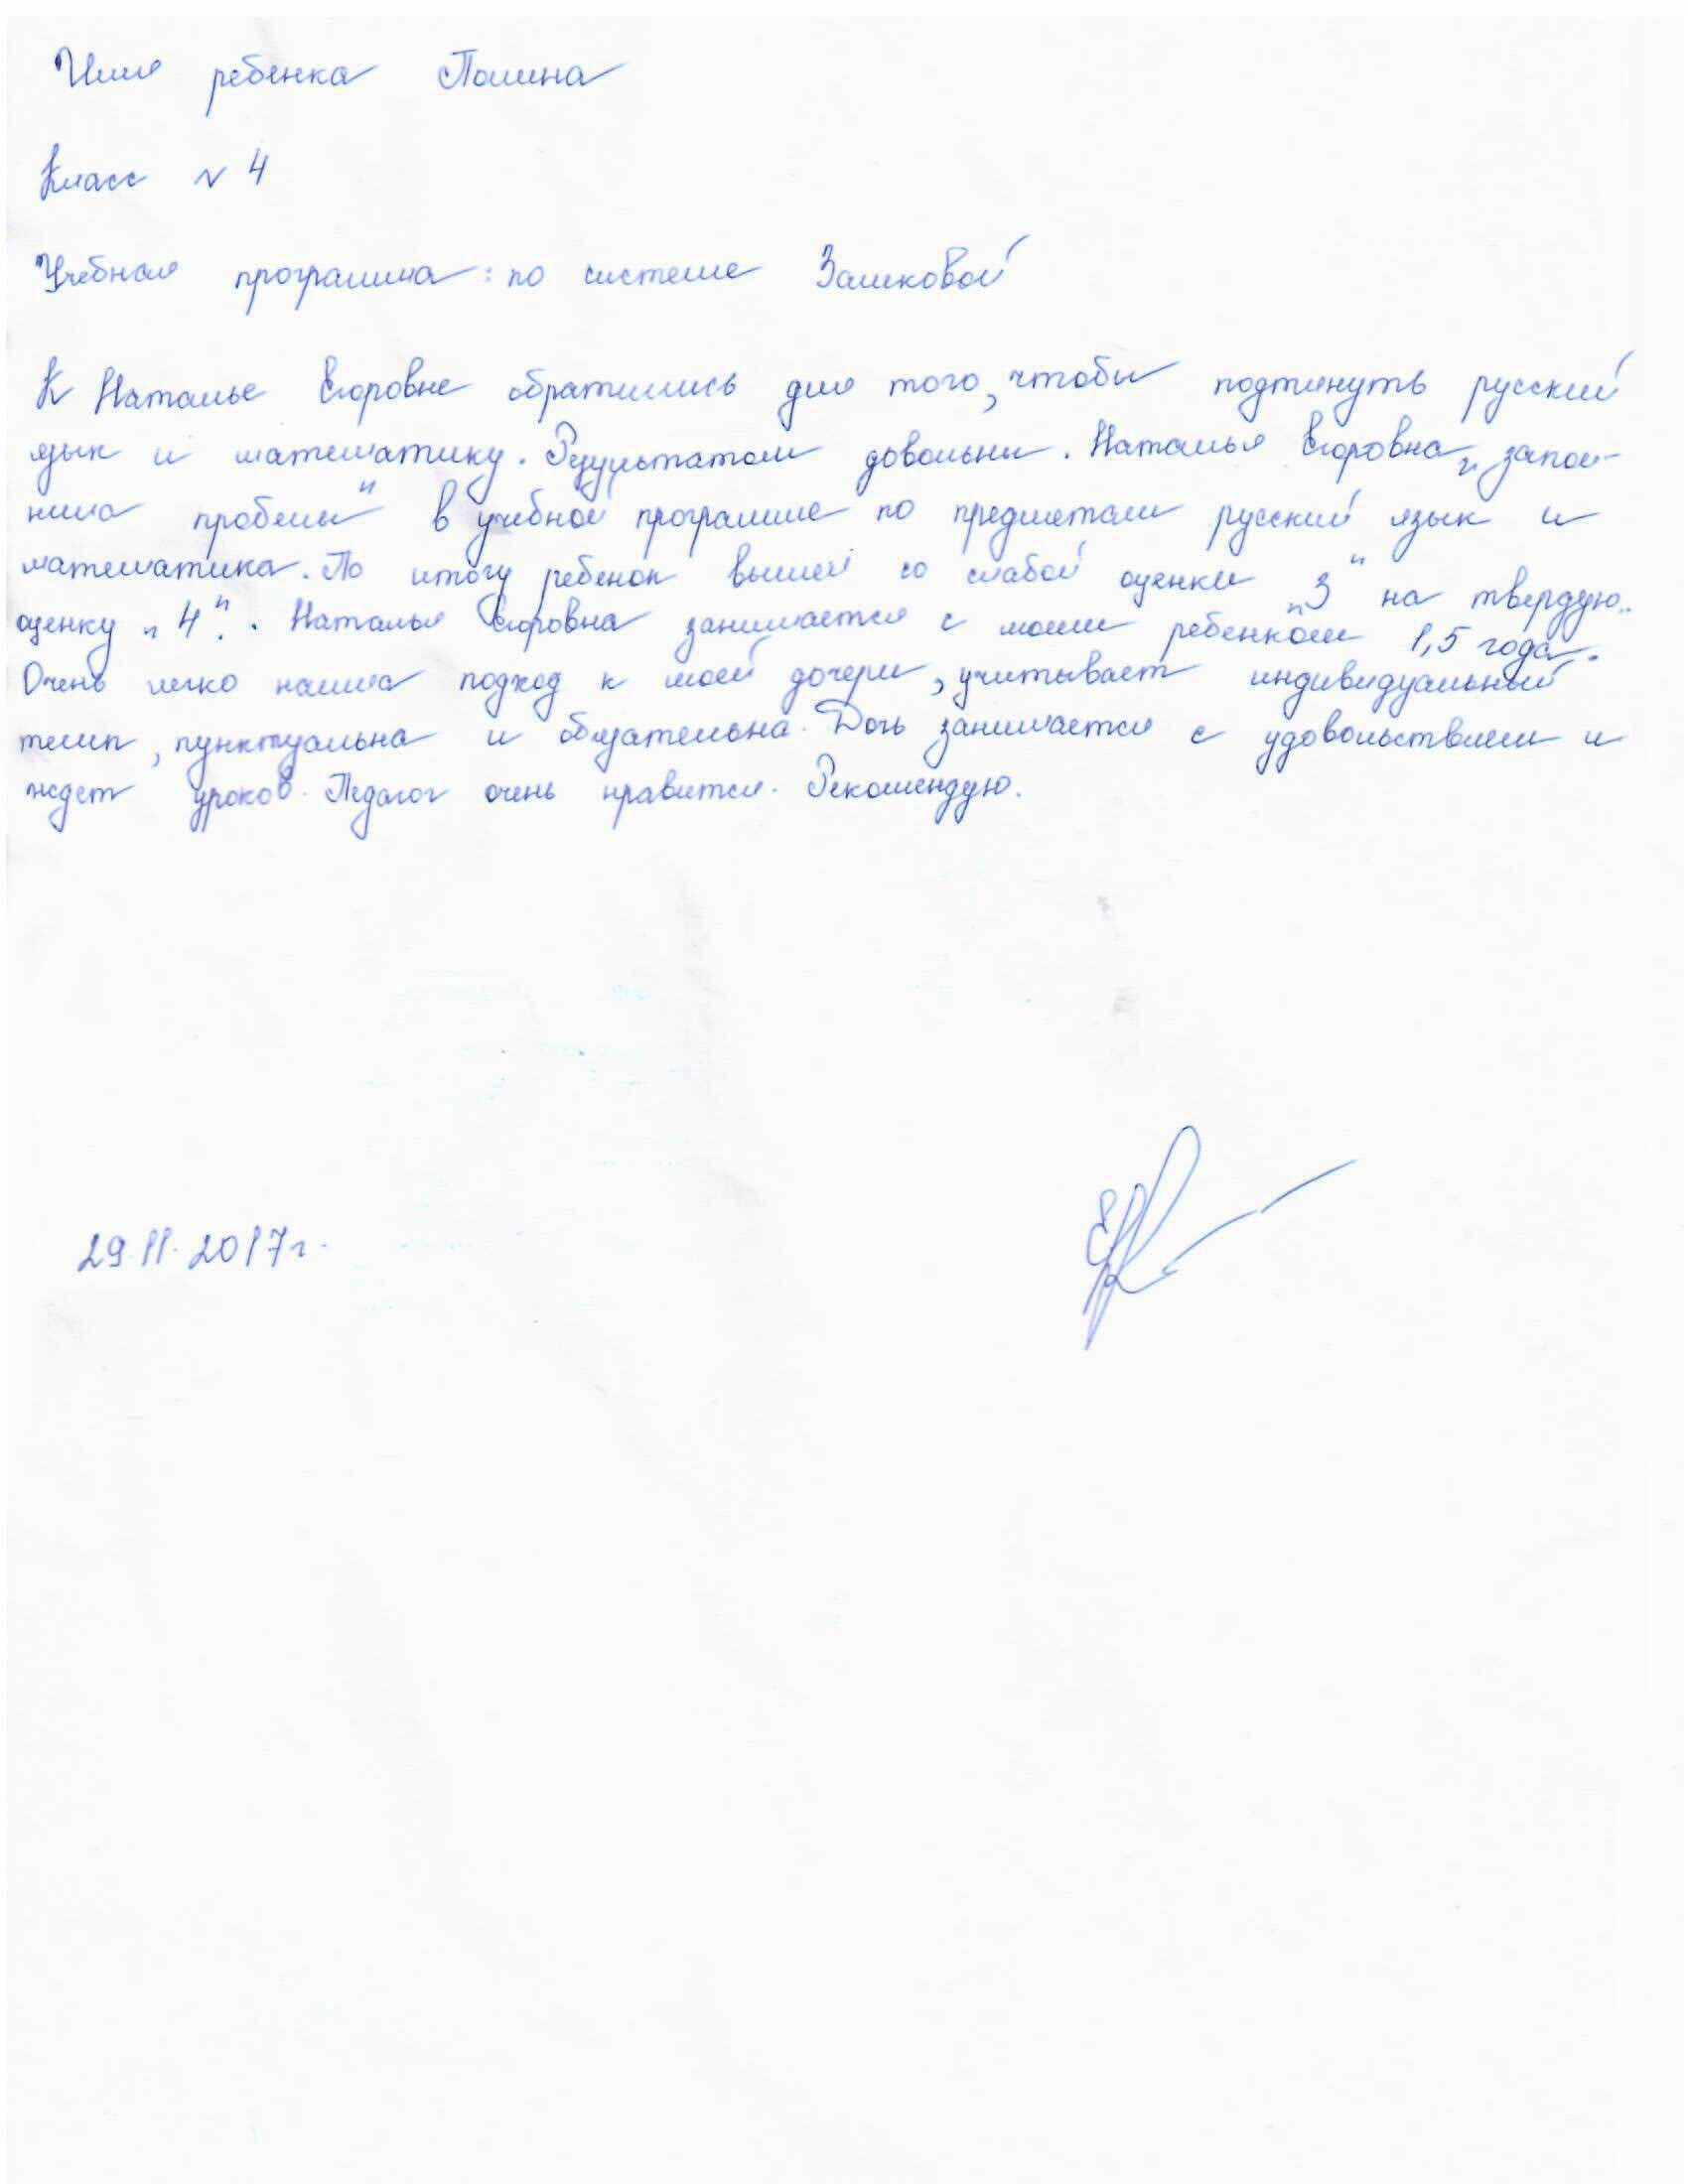 Имя ребенка Полина
Класс N 4
Учебная программа: по системе Замковой
К Наталье Егоровне обратились для того, чтобы подтянуть русский
язык и математику. Результатом довольны. Наталья Егоровна „запол-
нила пробелы" в учебной программе по предметам русский язык и
математика. По итогу ребенок вышел со слабой оценки „3" на твердую
оценку „4". Наталья Егоровна занимается с моим ребенком 1,5 года.
Очень легко нашла подход к моей дочери, учитывает индивидуальный
темп, пунктуальна и обязательна. Дочь занимается с удовольствием и
ждет уроков. Педагог очень нравится. Рекомендую.
29.11.2017г.